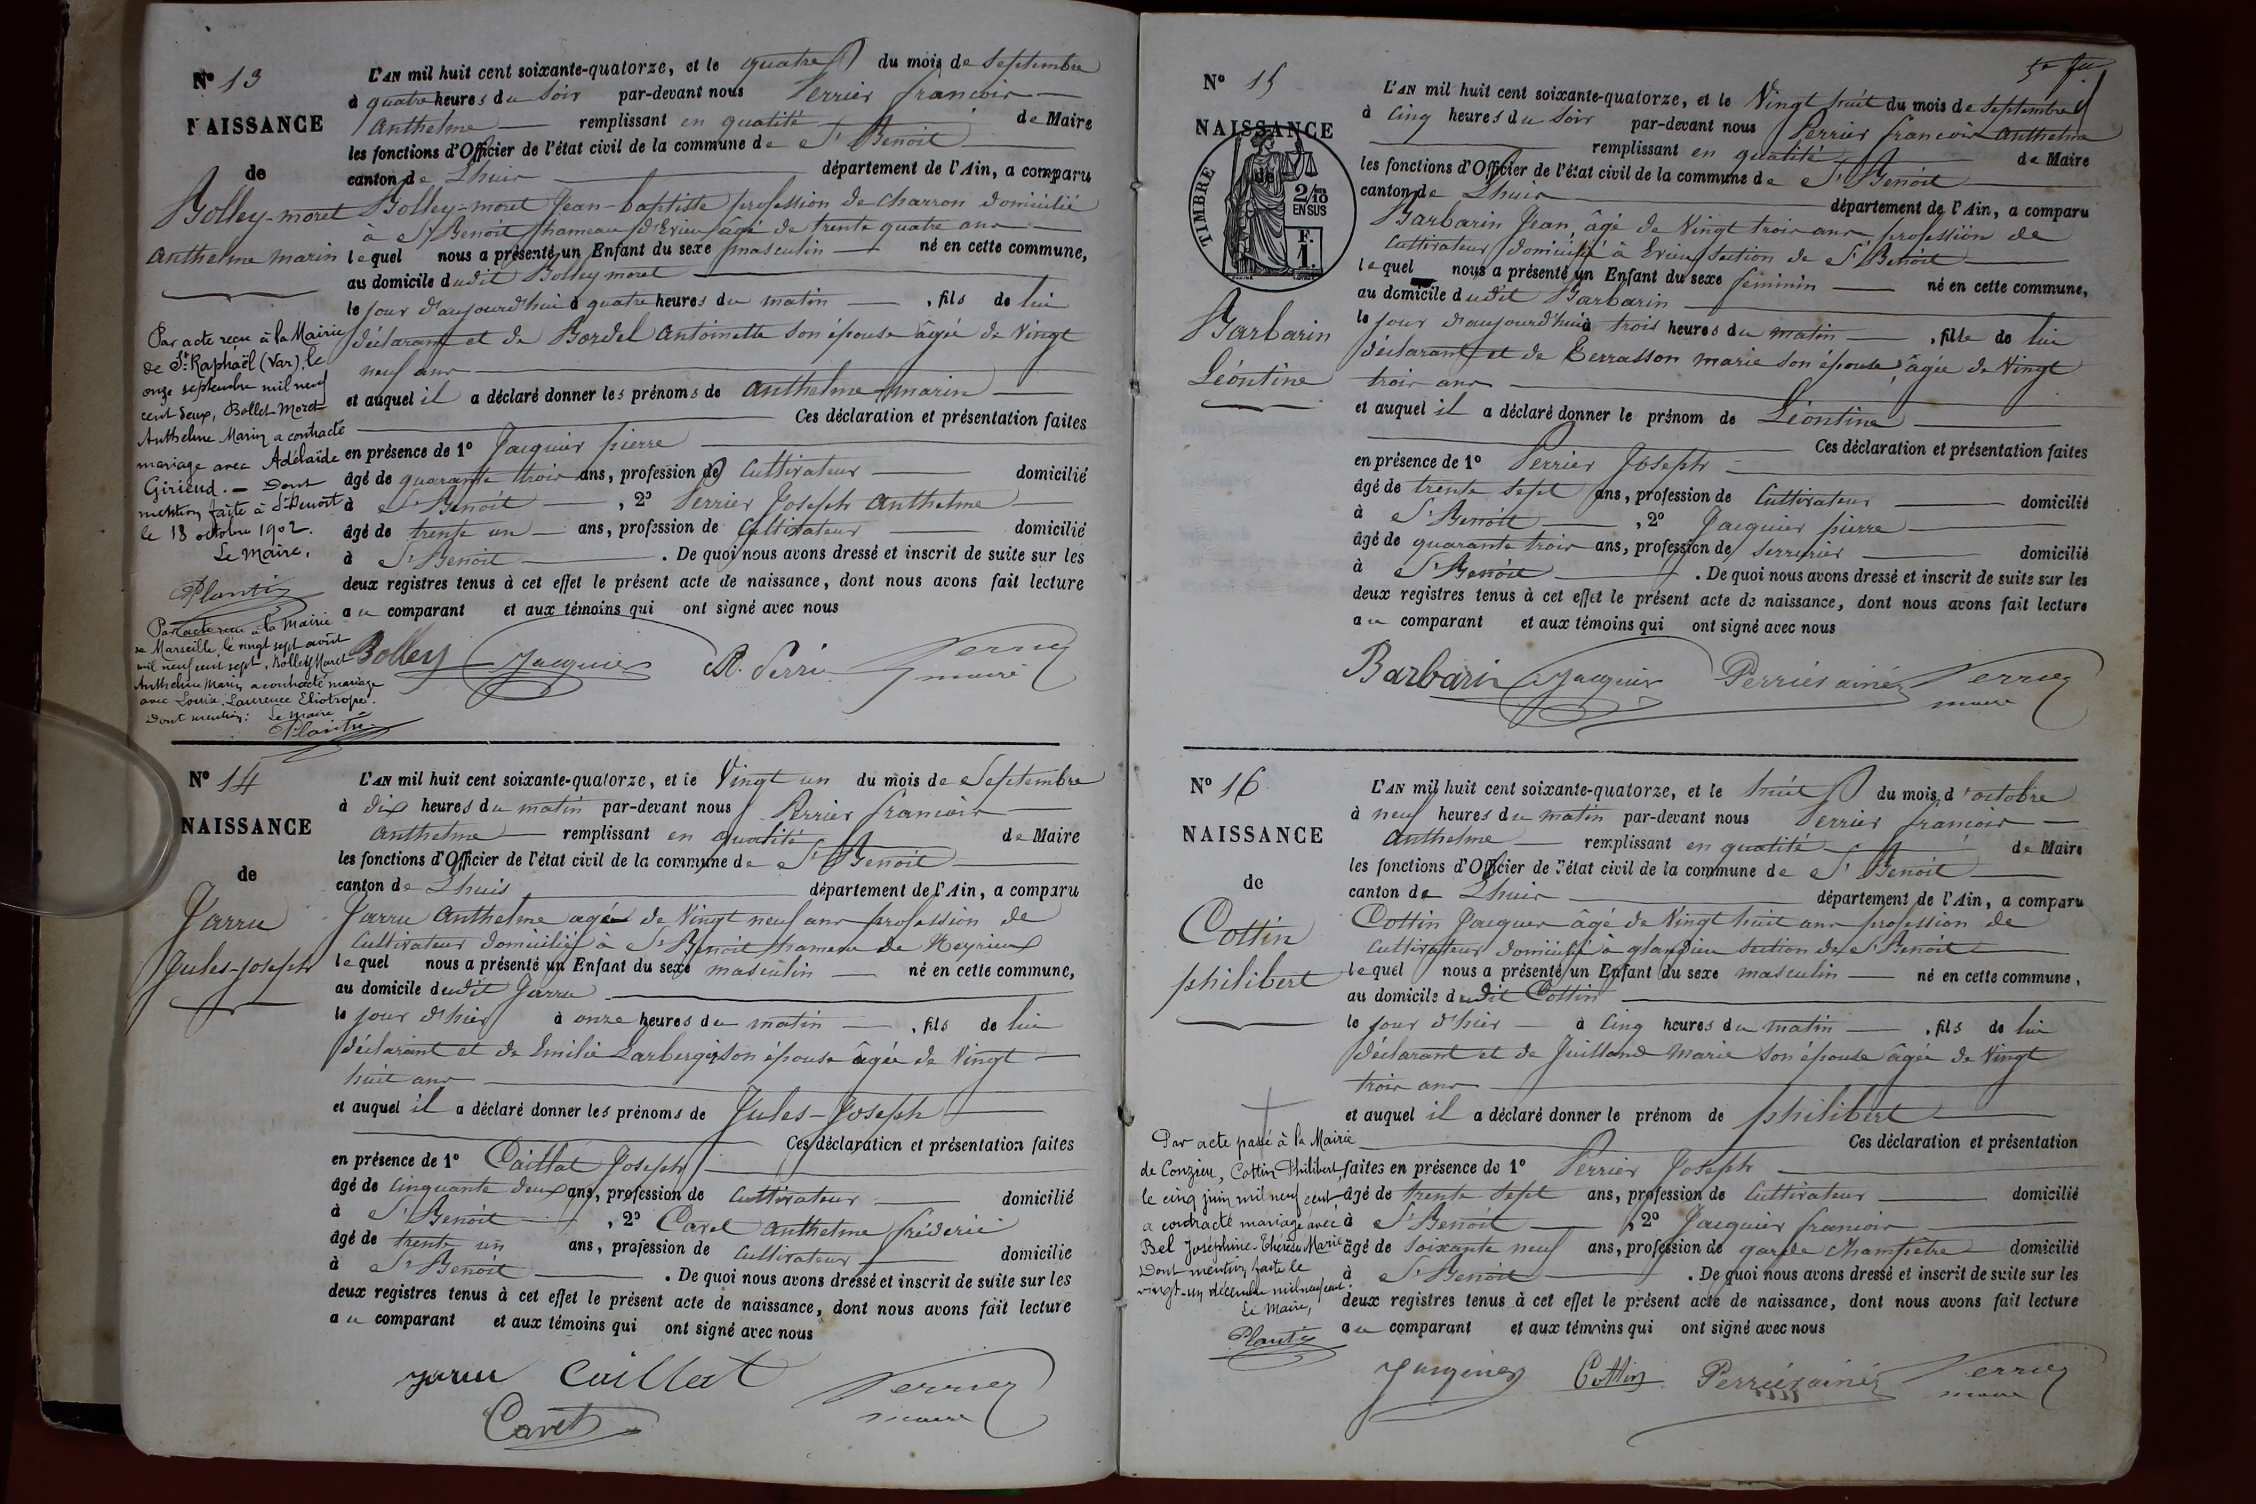 N° 13
NAISSANCE
de
Bolley-moret
Anthelme marin
Par acte reçu à la Mairie
de St Raphaël (Var), le
onze septembre mil neuf
cent deux, Bollet-Moret
Anthelme Marin a contracté
mariage avec Adélaïde
Giriend. — Dont
mention faite à St Benoit
le 18 octobre 1902.
Le Maire,
Plantin
Par acte reçu à la Mairie
de Marseille, le vingt sept août
mil neuf cent sept, Bolley Moret
Anthelme Marin a contracté mariage
avec Louise, Laurence Eliotrope.
Dont mention: Le Maire
Plantin
L'AN mil huit cent soixante-quatorze, et le quatre du mois de Septembre
à quatre heures du Soir par-devant nous Perrier françois
Anthelme remplissant en qualité de Maire
les fonctions d'Officier de l'état civil de la commune de St Benoit
canton de Lhuis département de l'Ain, a comparu
Bolley-moret Jean-baptiste profession de Charron domicilié
à St Benoit hameau d'Evieu âgé de trente quatre ans
lequel nous a présenté un Enfant du sexe masculin né en cette commune,
au domicile dudit Bolley moret
le jour d'aujourd'hui à quatre heures du matin , fils de lui
déclarant et de Bordel Antoinette son épouse âgée de Vingt
neuf ans
et auquel il a déclaré donner les prénoms de Anthelme-marin
Ces déclaration et présentation faites
en présence de 1° Jacquier pierre
âgé de quarante trois ans, profession de Cultivateur domicilié
à St Benoit , 2° Perrier Joseph Anthelme
âgé de trente un ans, profession de Cultivateur domicilié
à St Benoit . De quoi nous avons dressé et inscrit de suite sur les
deux registres tenus à cet effet le présent acte de naissance, dont nous avons fait lecture
au comparant et aux témoins qui ont signé avec nous
Bolley Jacquier A. Perrier Perrier
maire
N° 14
NAISSANCE
de
Jarru
Jules-Joseph
L'AN mil huit cent soixante-quatorze, et le Vingt un du mois de Septembre
à dix heures du matin par-devant nous Perrier françois
Anthelme remplissant en qualité de Maire
les fonctions d'Officier de l'état civil de la commune de St Benoit
canton de Lhuis département de l'Ain, a comparu
Jarru Anthelme agé de Vingt neuf ans profession de
Cultivateur domicilié à St Benoit hameau de Neyrieux
lequel nous a présenté un Enfant du sexe masculin né en cette commune,
au domicile dudit Jarru
le jour d'hier à onze heures du matin , fils de lui
déclarant et de Emilie son épouse âgée de Vingt
huit ans
et auquel il a déclaré donner les prénoms de Jules-Joseph
Ces déclaration et présentation faites
en présence de 1° Caillat Joseph
âgé de Cinquante deux ans, profession de Cultivateur domicilié
à St Benoit , 2° Cavet Anthelme fréderic
âgé de trente un ans, profession de Cultivateur domicilié
à St Benoit . De quoi nous avons dressé et inscrit de suite sur les
deux registres tenus à cet effet le présent acte de naissance, dont nous avons fait lecture
au comparant et aux témoins qui ont signé avec nous
Jarru Caillat Perrier
maire
Cavet
N° 15
NAISSANCE
de
TIMBRE
2/10
EN SUS
F.
1.
Barbarin
Léontine
L'AN mil huit cent soixante-quatorze, et le Vingt huit du mois de Septembre
à Cinq heures du Soir par-devant nous Perrier françois Anthelme
remplissant en qualité de Maire
les fonctions d'Officier de l'état civil de la commune de St Benoit
canton de Lhuis département de l'Ain, a comparu
Barbarin Jean, âgé de Vingt trois ans profession de
Cultivateur domicilié à Evieu Section de St Benoit
lequel nous a présenté un Enfant du sexe féminin né en cette commune,
au domicile dudit Barbarin
le jour d'aujourd'hui à trois heures du matin , fille de lui
déclarant et de Terrasson marie son épouse, âgée de Vingt
trois ans
et auquel il a déclaré donner le prénom de Léontine
Ces déclaration et présentation faites
en présence de 1° Perrier Joseph
âgé de trente Sept ans, profession de Cultivateur domicilié
à St Benoit , 2° Jacquier pierre
âgé de quarante trois ans, profession de Serrurier domicilié
à St Benoit . De quoi nous avons dressé et inscrit de suite sur les
deux registres tenus à cet effet le présent acte de naissance, dont nous avons fait lecture
au comparant et aux témoins qui ont signé avec nous
Barbarin Jacquier Perrier ainé Perrier
maire
N° 16
NAISSANCE
de
Cottin
philibert
Par acte passé à la Mairie
de Conzieu, Cottin Philibert,
le cinq juin mil neuf cent
a contracté mariage avec
Bel Joséphine-Thérèse Marie
Dont mention faite le
vingt-un décembre mil neuf cent.
Le Maire,
Plantin
L'AN mil huit cent soixante-quatorze, et le huit du mois d'octobre
à neuf heures du matin par-devant nous Perrier françois
Anthelme remplissant en qualité de Maire
les fonctions d'Officier de l'état civil de la commune de St Benoit
canton de Lhuis département de l'Ain, a comparu
Cottin Jacques âgé de Vingt huit ans profession de
Cultivateur domicilié à glandieu Section de St Benoit
lequel nous a présenté un Enfant du sexe masculin né en cette commune,
au domicile dudit Cottin
le jour d'hier à Cinq heures du matin , fils de lui
déclarant et de Juilland Marie Son épouse âgée de Vingt
trois ans
et auquel il a déclaré donner le prénom de philibert
Ces déclaration et présentation
faites en présence de 1° Perrier Joseph
âgé de trente Sept ans, profession de Cultivateur domicilié
à St Benoit , 2° Jacquier françois
âgé de soixante neuf ans, profession de garde Champêtre domicilié
à St Benoit . De quoi nous avons dressé et inscrit de suite sur les
deux registres tenus à cet effet le présent acte de naissance, dont nous avons fait lecture
au comparant et aux témoins qui ont signé avec nous
Jacquier Cottin Perrier ainé Perrier
maire